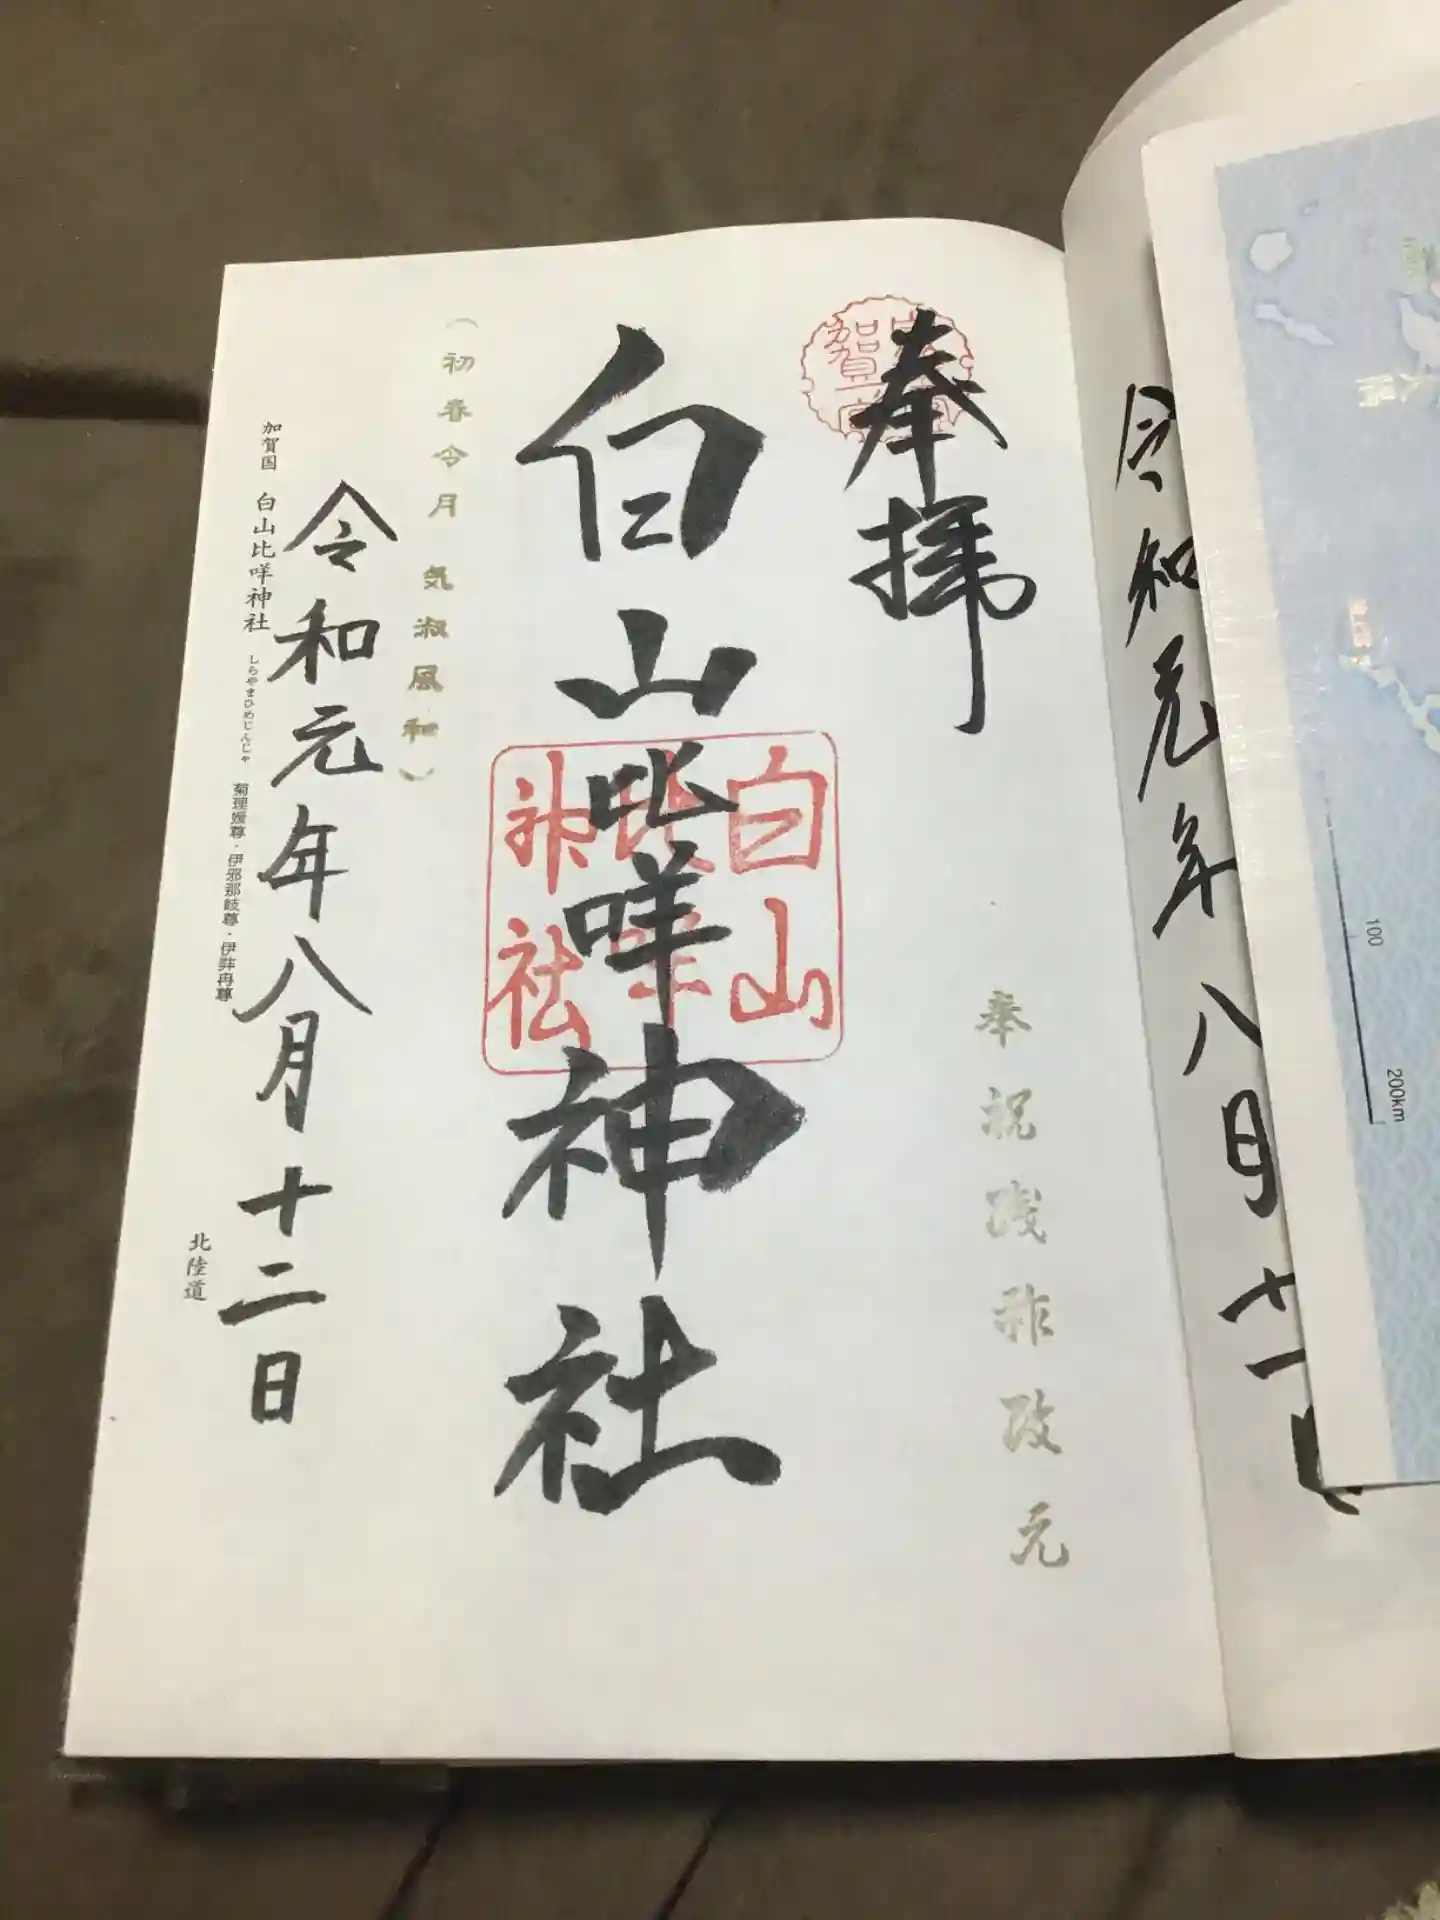 令和元年八月十一日
奉拝
加賀一宮
奉祝践祚改元
白山比咩神社
白山比咩神社
(初春令月 気淑風和)
令和元年八月十二日
加賀国 白山比咩神社 しらやまひめじんじゃ 菊理媛尊・伊邪那岐尊・伊弉冉尊
北陸道
100
200km